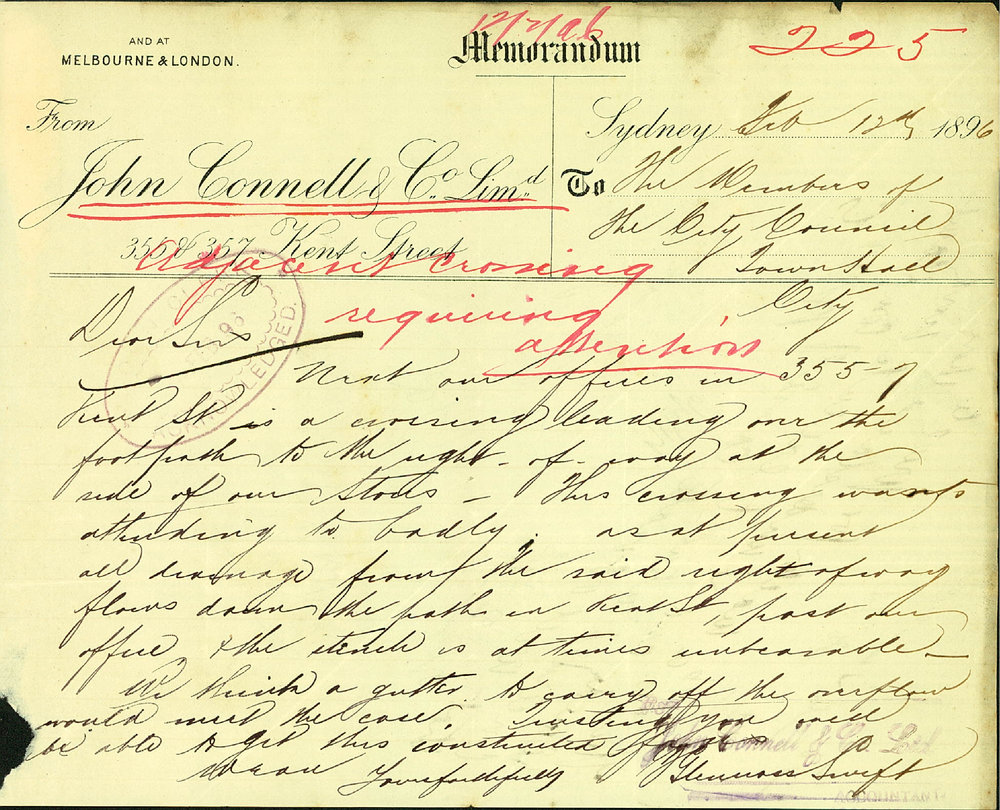 12/2/96
225
AND AT
MELBOURNE & LONDON.
Memorandum
From
Sydney Feb 12th 1896
John Connell & Co. Limd.
To The Members of
the City Council
355 & 357 Kent Street
Town Hall
City
Adjacent crossing
requiring
attention
Dear Sirs
Next our offices in 355-7
Kent St is a crossing leading over the
footpath to the right-of-way at the
side of our Stores – This crossing wants
attending to badly. as at present
all drainage from the said right of way
flows down the path in Kent St, past our
office & the stench is at times unbearable –
We think a gutter to carry off the overflow
would meet the case. Trusting you will
be able to get this constructed
Yours faithfully
John Connell & Co. Ltd
Swift
ACCOUNTANT